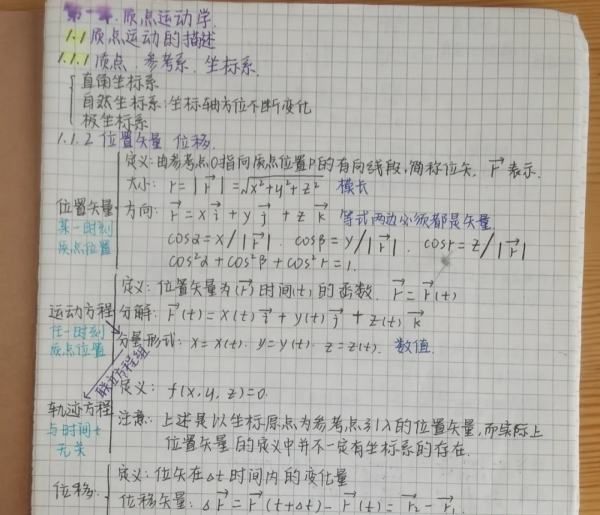 第一章.质点运动学.
1.1 质点运动的描述
1.1.1 质点.参考系.坐标系.
直角坐标系
自然坐标系:坐标轴方位不断变化
极坐标系
1.1.2 位置矢量 位移.
定义:由参考点O指向质点位置P的有向线段,简称位矢. r⃗ 表示.
大小: r=|r⃗|=√x²+y²+z² 模长
位置矢量 方向: r⃗=x i⃗+y j⃗+z k⃗ 等式两边必须都是矢量
某一时刻
质点位置 cosα=x/|r⃗|. cosβ=y/|r⃗|. cosr=z/|r⃗|
cos²α+cos²β+cos²r=1.
定义: 位置矢量为(r⃗)时间(t)的函数. r⃗=r⃗(t)
运动方程 分解: r⃗(t)=x(t) i⃗+y(t) j⃗+z(t) k⃗
任一时刻
质点位置 分量形式: x=x(t). y=y(t). z=z(t). 数值.
联立方程组
定义: f(x,y,z)=0.
轨迹方程 注意: 上述是以坐标原点为参考点引入的位置矢量,而实际上
与时间t
无关 位置矢量的定义中并不一定有坐标系的存在.
定义:位矢在Δt时间内的变化量
位移. 位移矢量: Δr⃗=r⃗(t+Δt)-r⃗(t)=r⃗₂-r⃗₁.